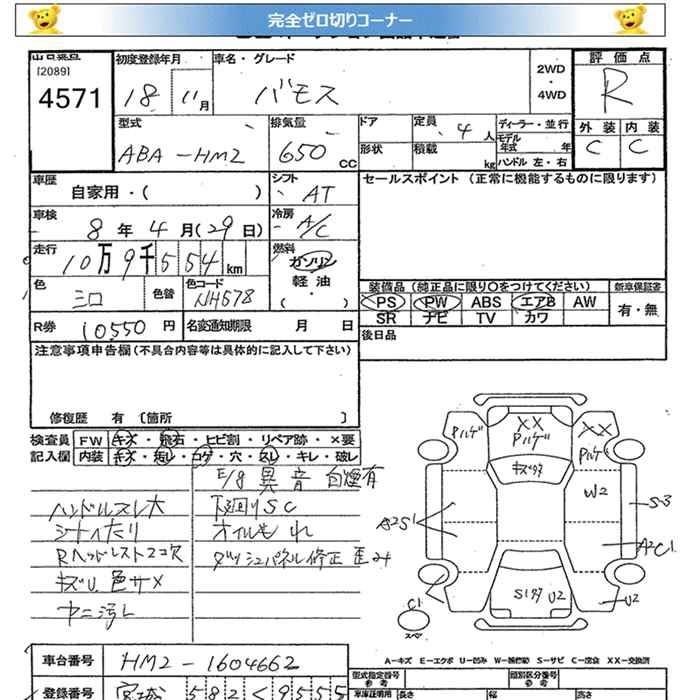 完全ゼロ切りコーナー
[2089]
4571
初度登録年月
18 11月
車名・グレード
バモス
2WD
・
4WD
評価点
R
外装 内装
C C
型式
ABA-HM2
排気量
650 CC
ドア
形状
定員 4人
積載 kg
ディーラー・並行
モデル年式 年
ハンドル 左・右
車歴
自家用・( )
シフト
AT
セールスポイント (正常に機能するものに限ります)
車検
8年4月(29日)
冷房
A/C
走行
10万9千554km
燃料
ガソリン
軽油
( ・ )
色
シロ
色替
色コード
NH578
装備品 (純正品に限り○をつけてください)
新車保証書
PS PW ABS エアB AW
SR ナビ TV カワ
有・無
R券 10550円
名変通知期限 月 日
後日品
注意事項申告欄(不具合内容等は具体的に記入して下さい)
修復歴 有 〔箇所 〕
検査員 FW キズ・飛石・ヒビ割・リペア跡・×要
記入欄 内装 キズ・汚レ・コゲ・穴・スレ・キレ・破レ
E/g 異音 白煙有
ハンドルスレ大
下廻りSC
シートへたり
オイルもれ
Rヘッドレスト2コ欠
ダッシュパネル修正 歪み
キズU 色サメ
ナニ汚レ
XX
Pハゲ
Pハゲ
XX
Pハゲ
キズワダ
W2
S-3
A2S1
A2C1
C1
U2
U2
スペア
車台番号 HM2-1604662
A-キズ E-エクボ U-凹み W-補修跡 S-サビ C-腐食 XX-交換済
型式指定番号
参考
類別区分番号
参考
登録番号 宮城 582 く 9555
車庫証明用 長さ 幅 高さ